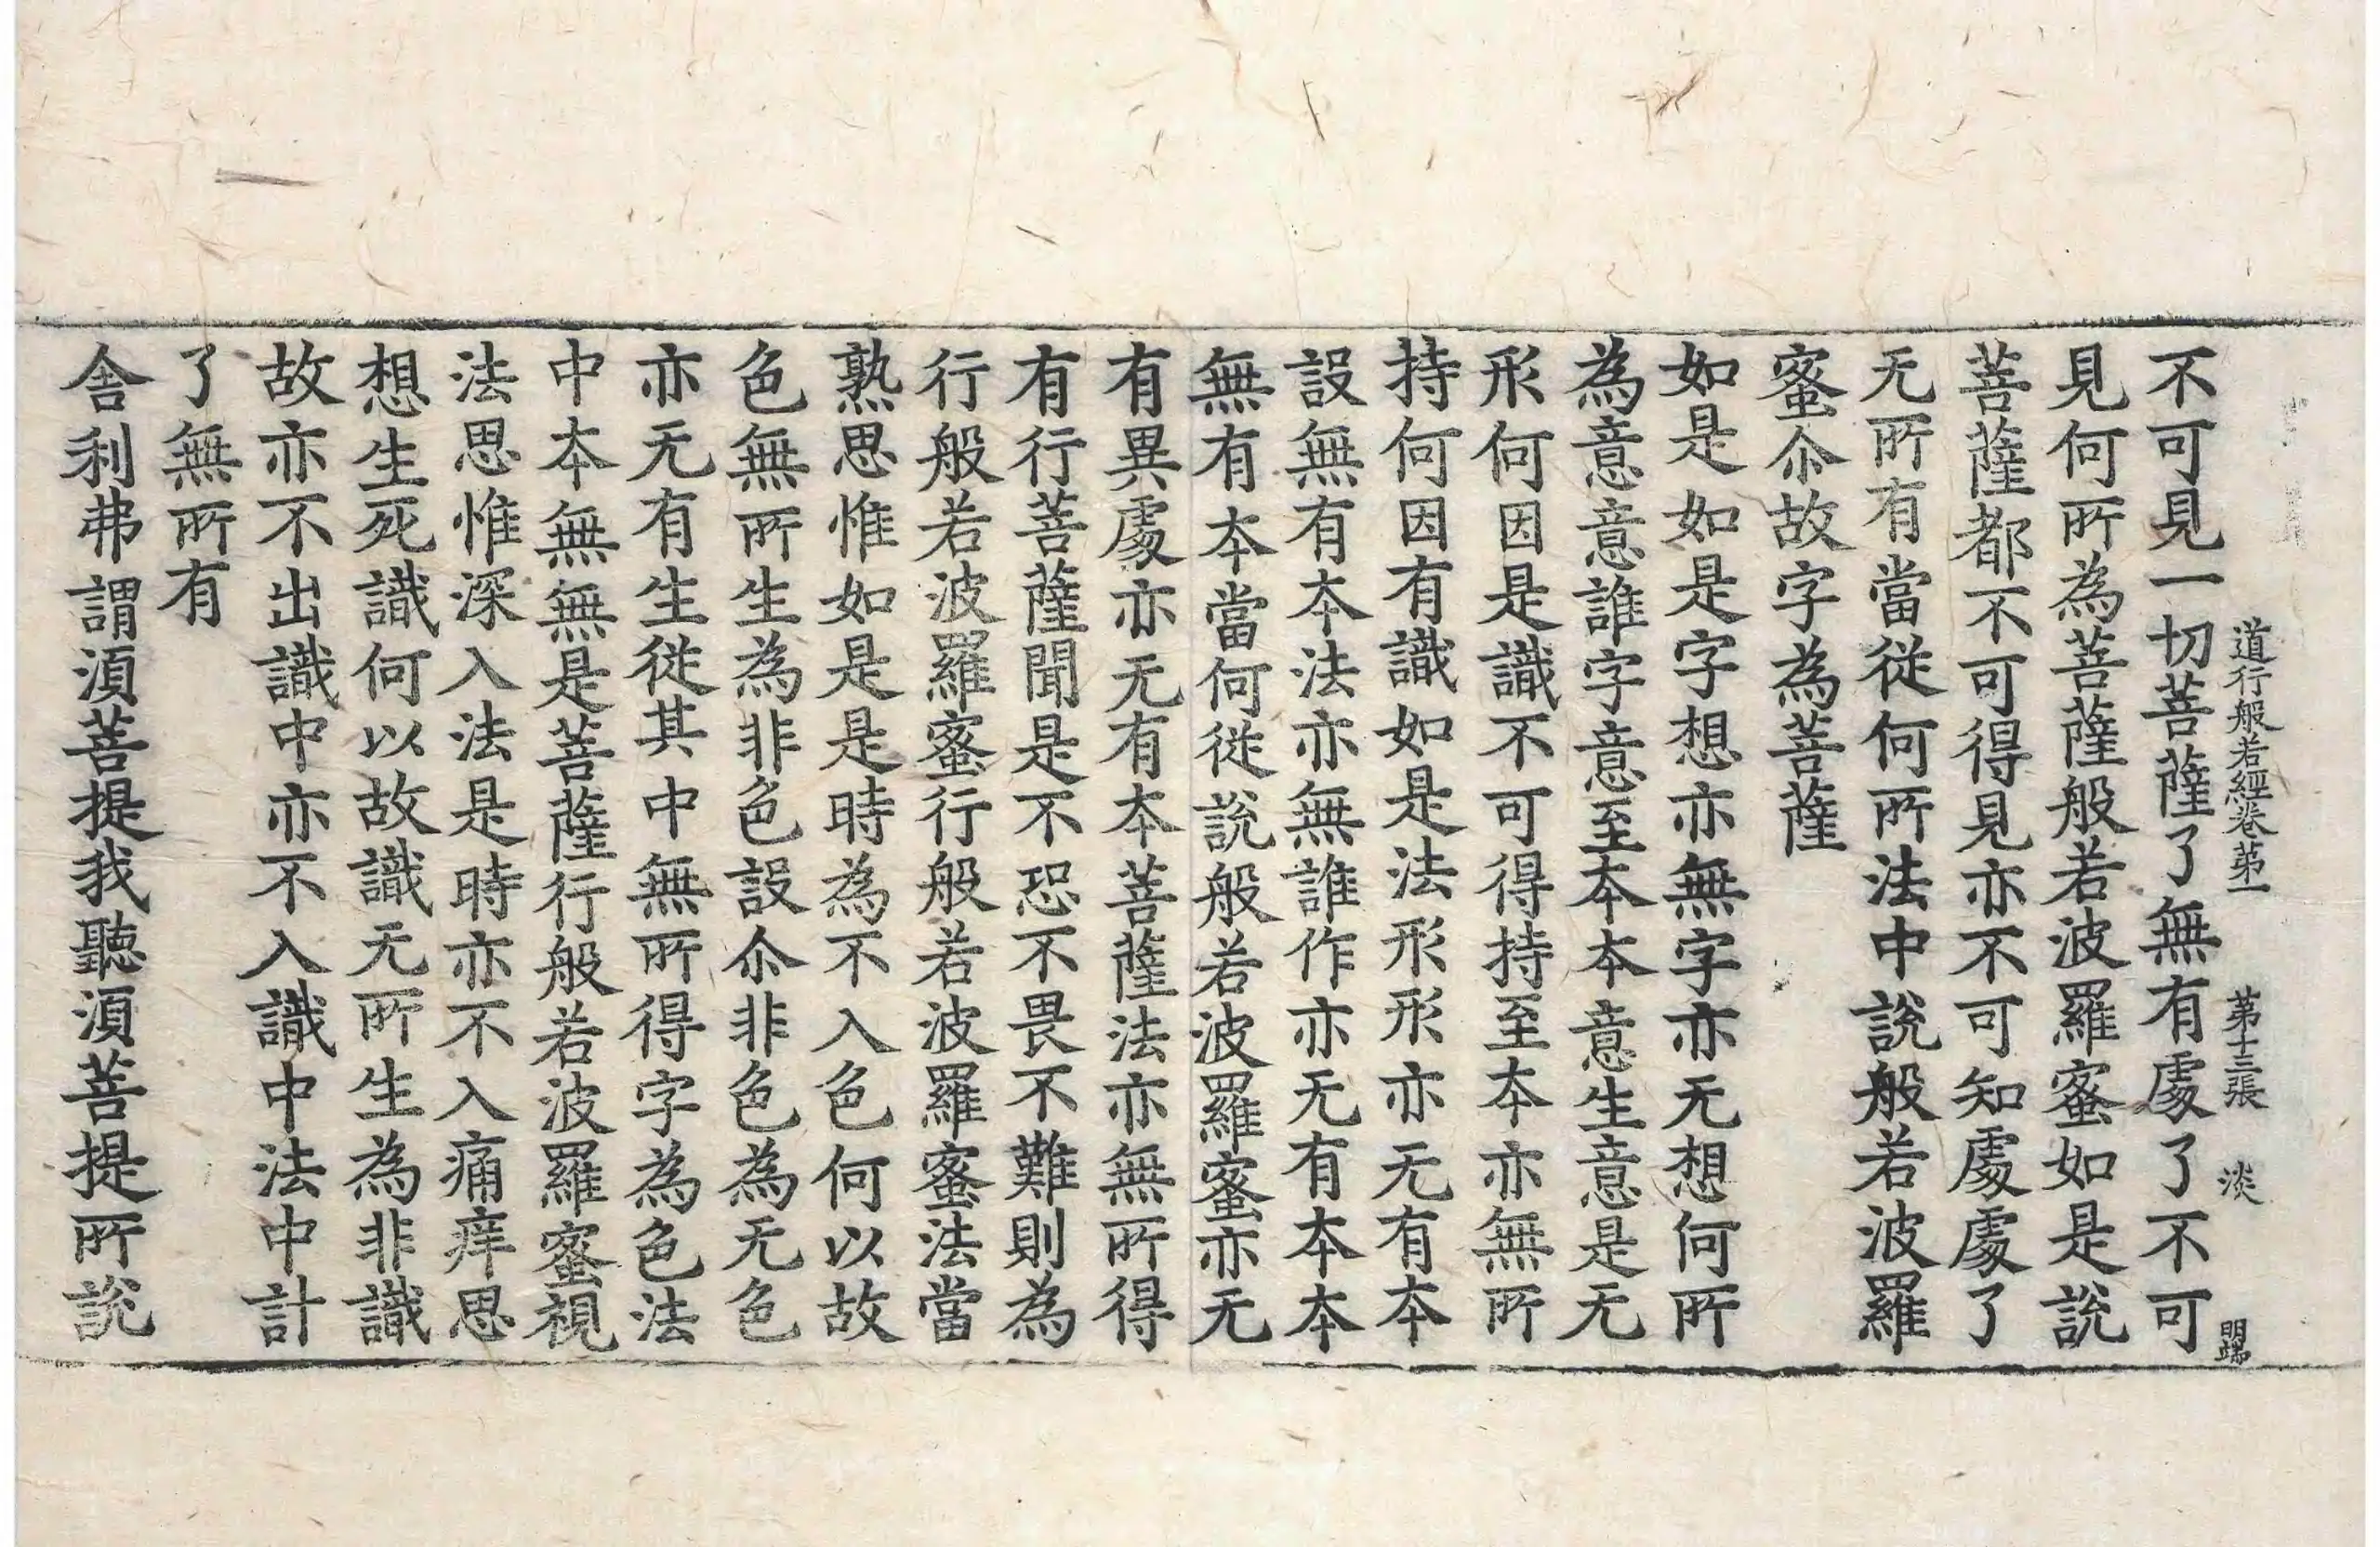 道行般若經卷苐一 苐十三張 淡
不可見一切菩薩了無有䖏了不可
見何所為菩薩般若波羅蜜如是說
菩薩都不可得見亦不可知䖏䖏了
无所有當從何所法中說般若波羅
蜜尒故字為菩薩
如是如是字想亦無字亦无想何所
為意意誰字意至夲夲意生意是无
形何因是識不可得持至夲亦無所
持何因有識如是法形形亦无有夲
設無有夲法亦無誰作亦无有夲夲
無有夲當何從說般若波羅蜜亦无
有異䖏亦无有夲菩薩法亦無所得
有行菩薩聞是不恐不畏不難則為
行般若波羅蜜行般若波羅蜜法當
熟思惟如是是時為不入色何以故
色無所生為非色設尒非色為无色
亦无有生從其中無所得字為色法
中夲無無是菩薩行般若波羅蜜視
法思惟深入法是時亦不入痛痒思
想生死識何以故識无所生為非識
故亦不出識中亦不入識中法中計
了無所有
舍利弗謂湏菩提我聽湏菩提所說